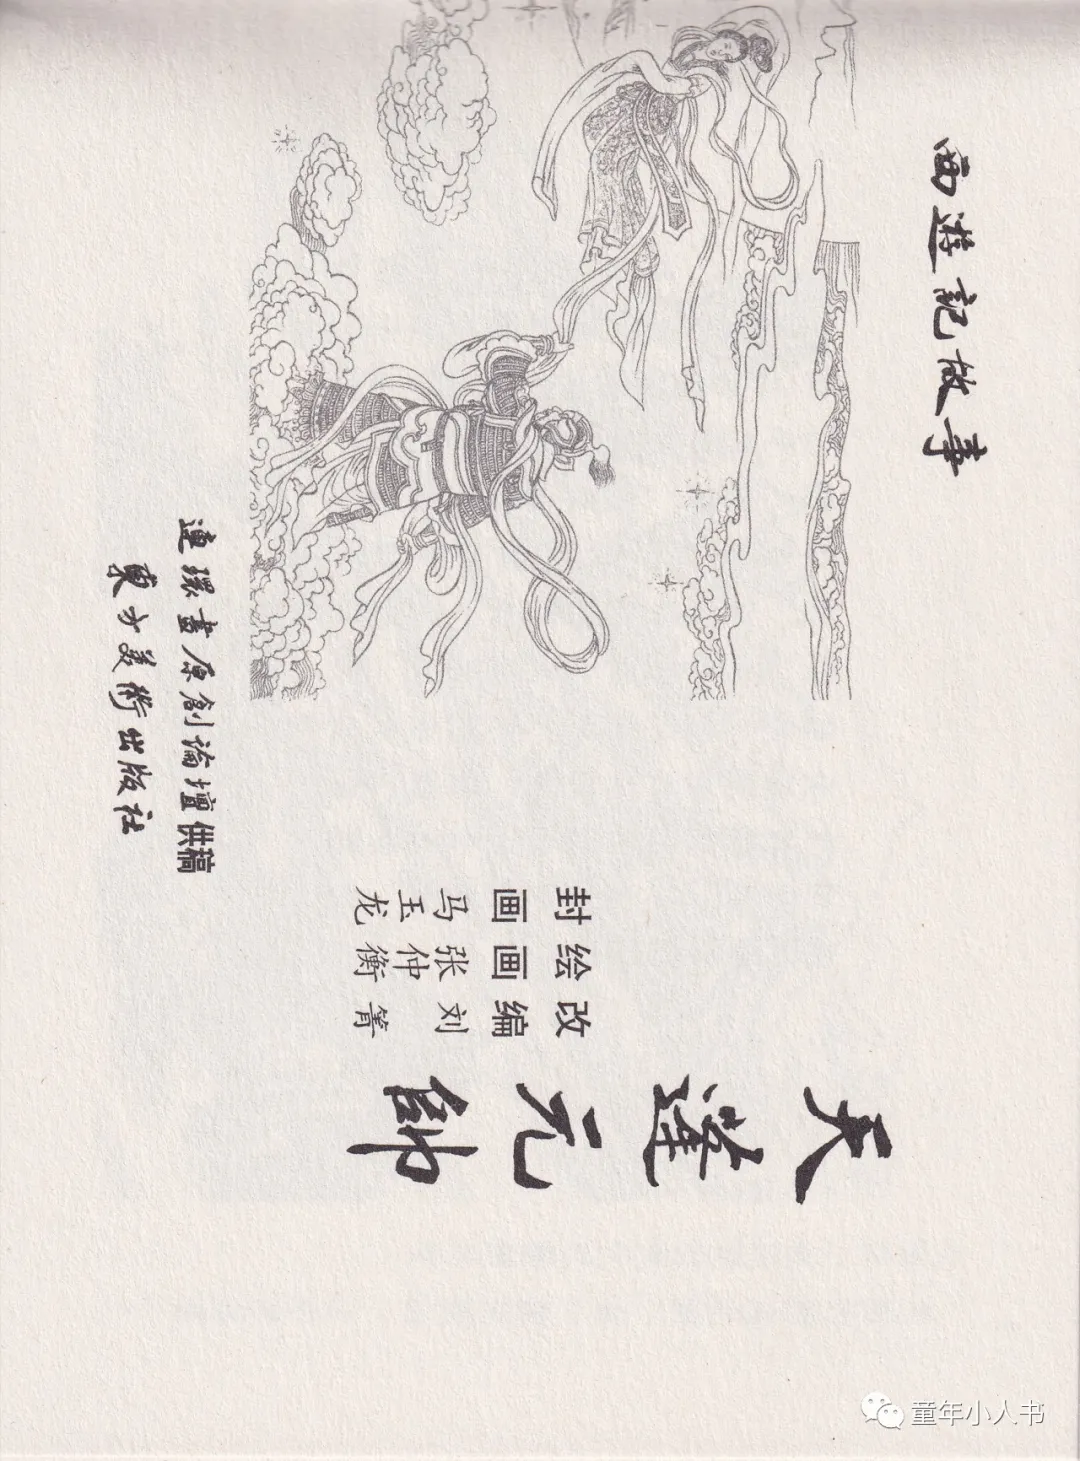 西遊記故事
天蓬元帥
改编 刘箐
绘画 张仲衡
封画 马玉龙
連環畫原創論壇供稿
東方美術出版社
童年小人书